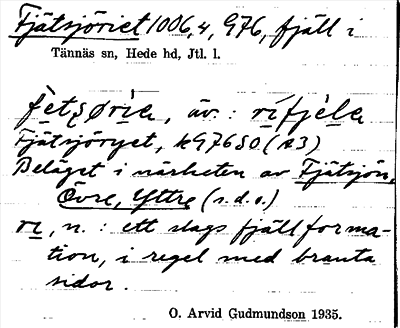 Fjätsjöriet 1006,4, G76, fjäll i
Tännäs sn, Hede hd, Jtl. l.
fetsøria, äv.: rífjela
Fjätsjöryet, kG76SO (R3)
Beläget i närheten av Fjätsjön,
Övre, Yttre (s.d.o.)
ri, n.: ett slags fjällforma-
tion, i regel med branta
sidor.
O. Arvid Gudmundson 1935.